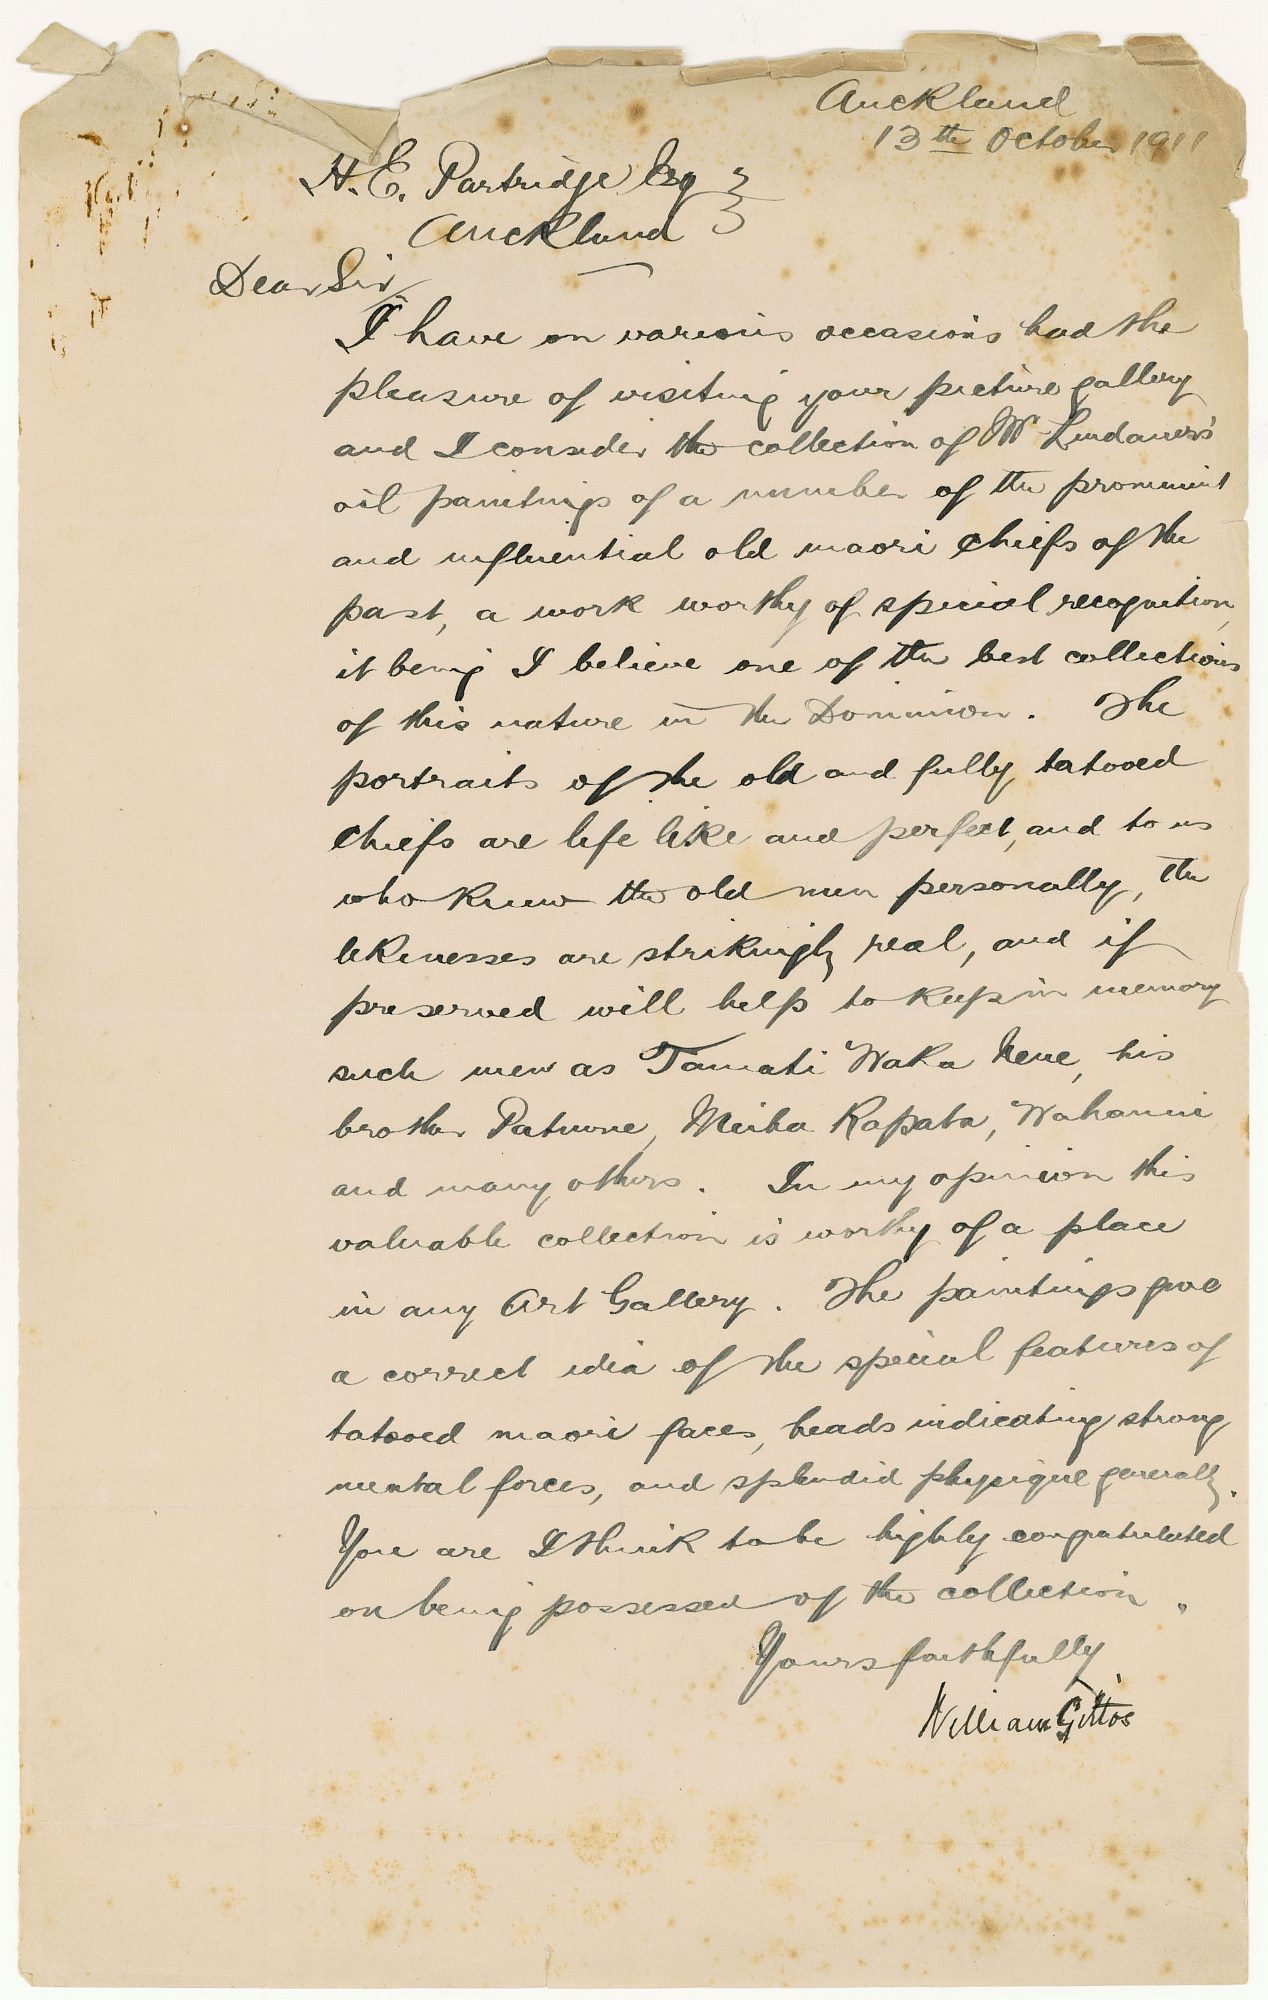 Auckland
13th October 1911
H. E. Partridge Esq
Auckland
Dear Sir,
I have on various occasions had the
pleasure of visiting your picture gallery
and I consider the collection of Mr Lindauer's
oil paintings of a number of the prominent
and influential old maori chiefs of the
past, a work worthy of special recognition,
it being I believe one of the best collections
of this nature in the Dominion. The
portraits of the old and fully tatooed
chiefs are life like and perfect, and to us
who knew the old men personally, the
likenesses are strikingly real, and if
preserved will help to keep in memory
such men as Tamati Waka Nene, his
brother Patuone, Meiha Kapata, Wahanui
and many others. In my opinion this
valuable collection is worthy of a place
in any Art Gallery. The paintings give
a correct idea of the special features of
tatooed maori faces, heads indicating strong
mental forces, and splendid physique generally.
You are I think to be highly congratulated
on being possessed of the collection.
Yours faithfully
William Gittos